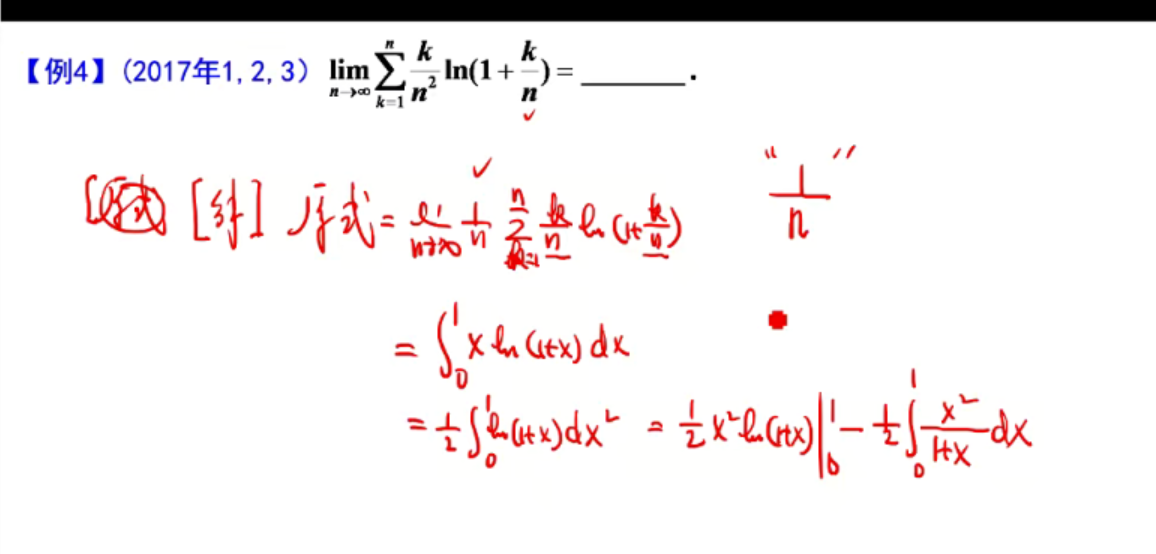 【例4】(2017年1, 2, 3) lim_{n→∞} ∑_{k=1}^{n} k/n² ln(1+k/n) = ______ .
[原式] [解] 原式 = lim_{n→∞} 1/n ∑_{k=1}^{n} k/n ln(1+k/n) “1/n”
= ∫₀¹ x ln(1+x) dx
= 1/2 ∫₀¹ ln(1+x) dx² = 1/2 x² ln(1+x) |₀¹ − 1/2 ∫₀¹ x²/(1+x) dx